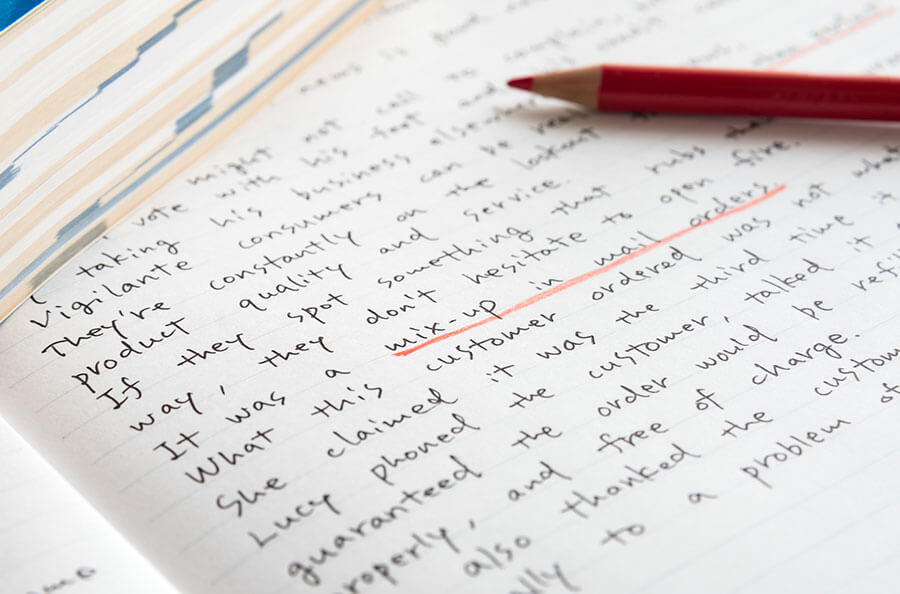 news is
might not call to complain,
vote with his feet and
taking his business
Vigilante consumers can be
They're constantly on the lookout
product quality and service.
If they spot something that rubs
way, they don't hesitate to open fire.
It was a mix-up in mail orders.
What this customer ordered was not what
She claimed it was the third time it
Lucy phoned the customer, talked it
guaranteed the order would be refil
roperly, and free of charge.
also thanked the custom
lly to a problem of